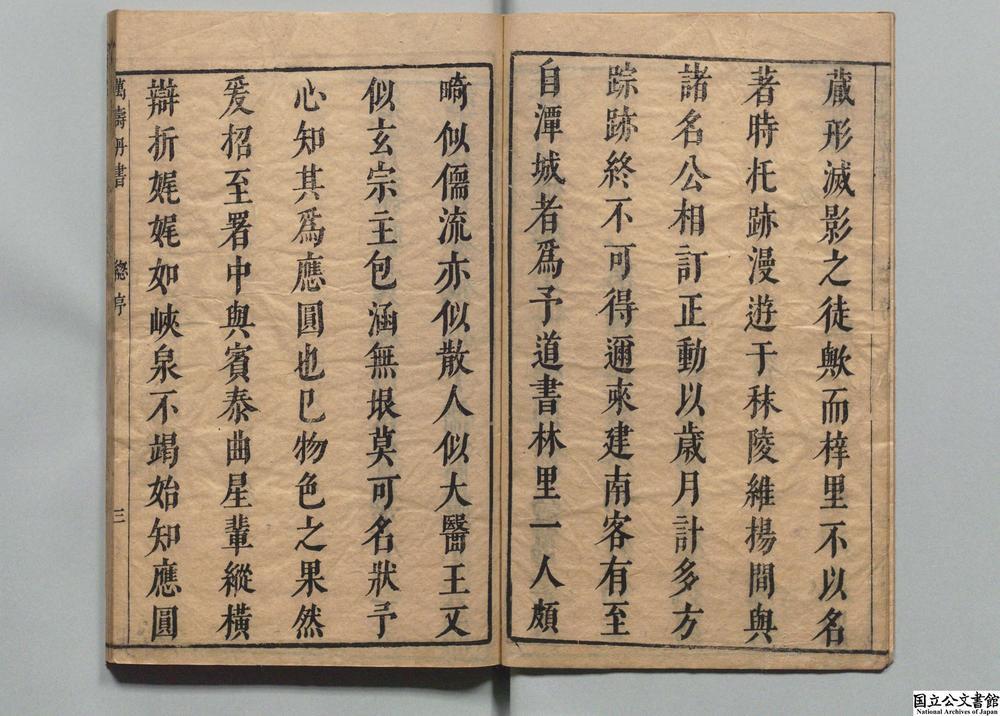 蔵形滅影之徒歟而梓里不以名
著時托跡漫遊于秣陵維揚間與
諸名公相訂正動以歳月計多方
踪跡終不可得邇來建南客有至
自潭城者爲予道書林里一人頗
畸似儒流亦似散人似大醫王又
似玄宗主包涵無垠莫可名狀予
心知其爲應圓也已物色之果然
爰招至署中與賓泰曲星輩縱橫
辯折娓娓如峽泉不竭始知應圓
萬壽丹書 總序 三
国立公文書館
National Archives of Japan